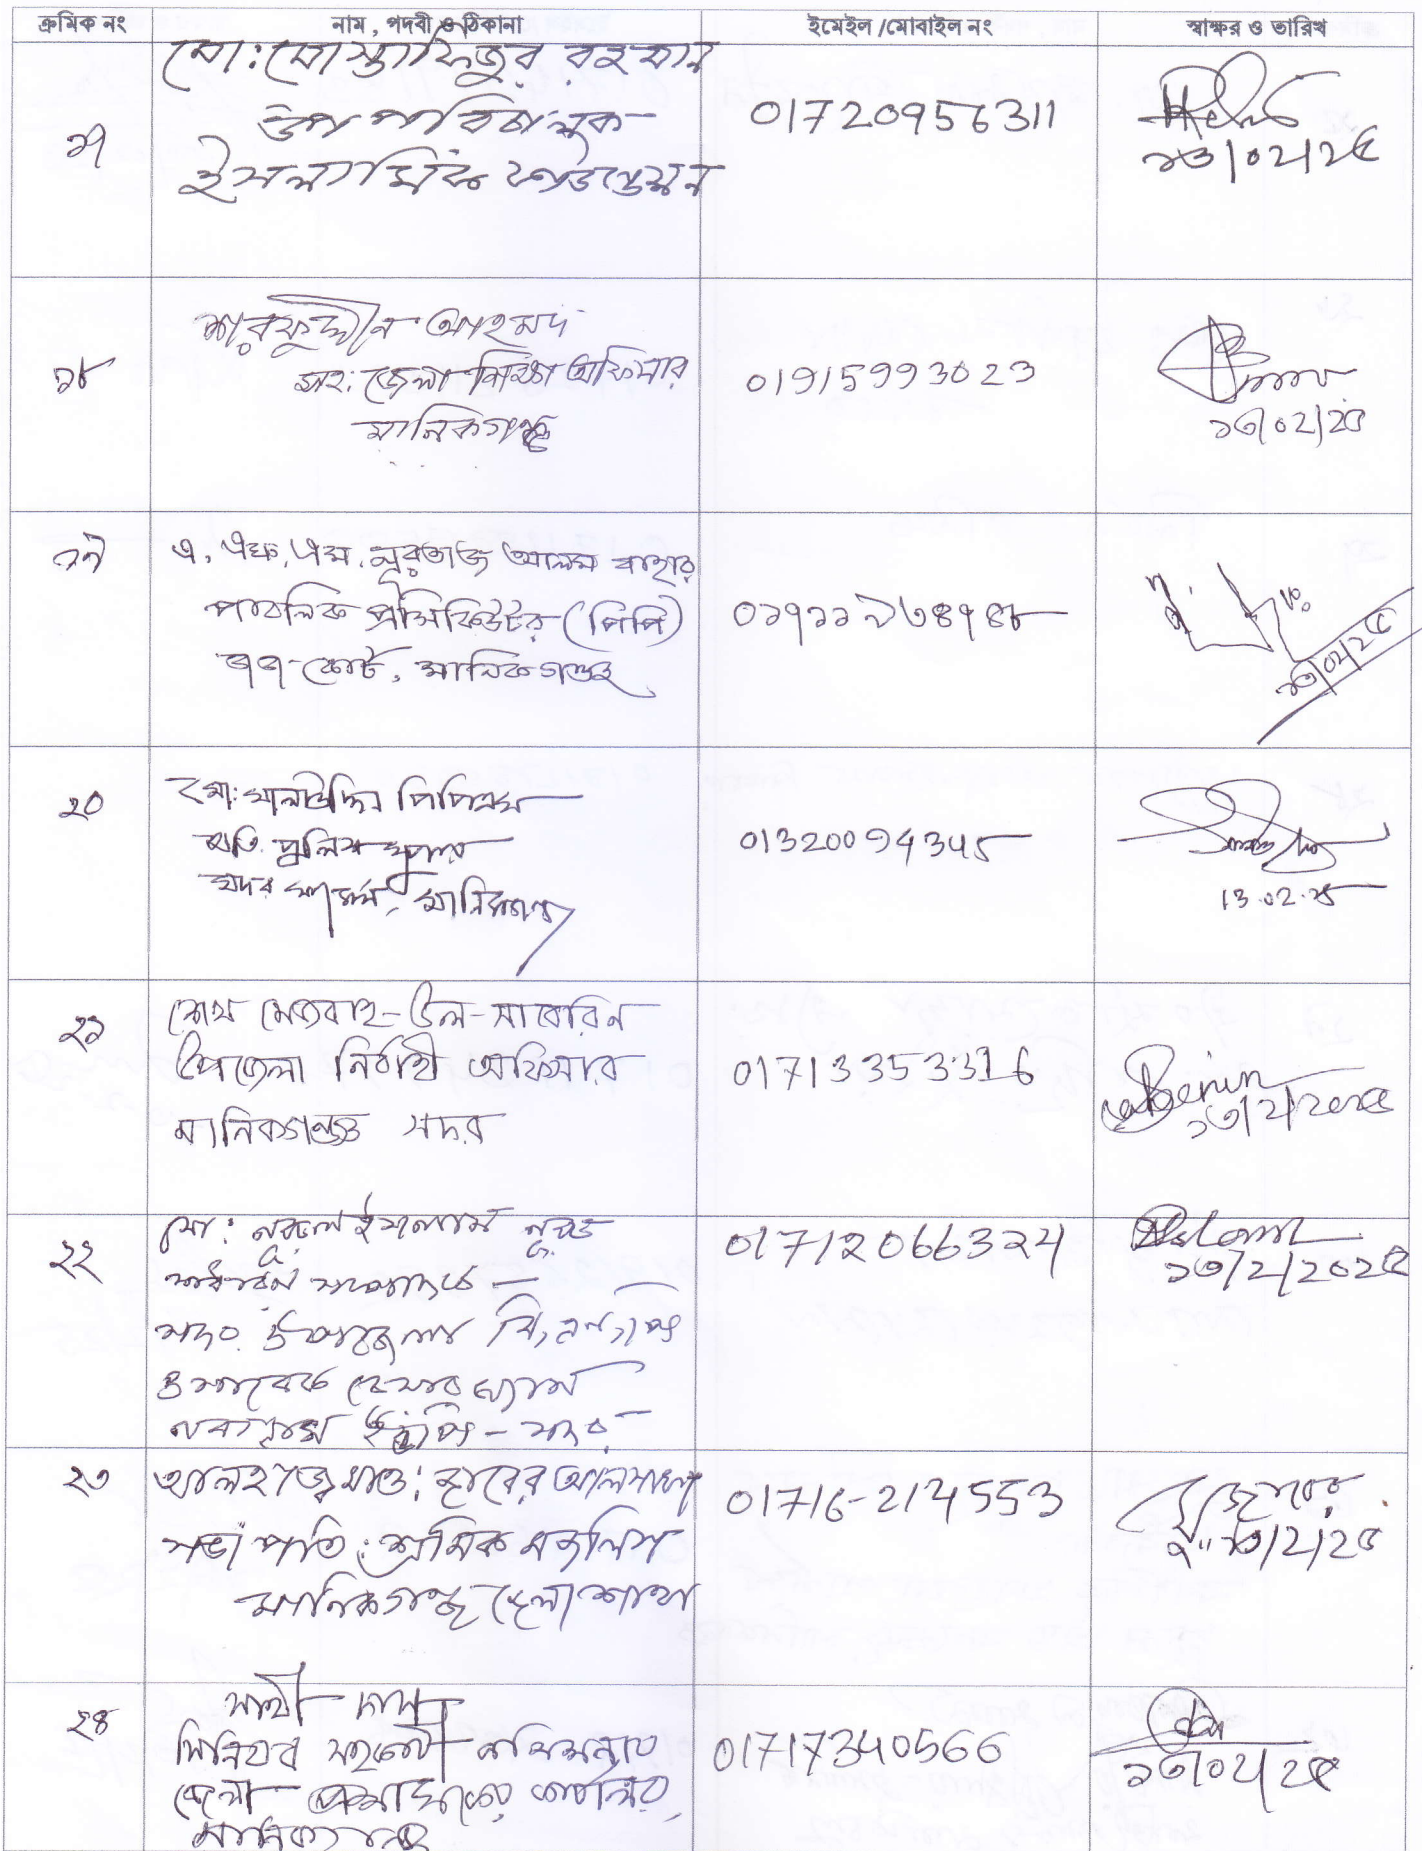 ক্রমিক নং নাম, পদবী ও ঠিকানা ইমেইল /মোবাইল নং স্বাক্ষর ও তারিখ
মো: মোস্তাফিজুর রহমান
উপ পরিচালক
ইসলামিক ফাউন্ডেশন
১৭ 01720956311
১৩/০২/২৫
শারফুদ্দীন আহমদ
সহ: জেলা শিক্ষা অফিসার
মানিকগঞ্জ
১৮ 01915993023
১৩/০২/২৫
১৯ এ, এফ, এম, নূরতাজ আলম বাহার
পাবলিক প্রসিকিউটর (পিপি)
জজ কোর্ট, মানিকগঞ্জ
০১৭১১৯৩৪৭৪৮
১৩/০২/২৫
২০ মো: সালাউদ্দিন পিপিএম
অতি. পুলিশ সুপার
সদর সার্কেল, মানিকগঞ্জ
01320094345
13.02.25
২১ শেখ মেজবাহ-উল-সাবেরিন
উপজেলা নির্বাহী অফিসার
মানিকগঞ্জ সদর
১৩/২/২০২৫
২২ মো: নুরুল ইসলাম
সদর উপজেলা বি,এন,পি
ও সাবেক চেয়ারম্যান
নবগ্রাম ইউপি - সদর
01712066324
১৩/২/২০২৫
২৩ আলহাজ্ব মাও:
সভাপতি: শ্রমিক মজলিস
মানিকগঞ্জ জেলা শাখা
01716-214553
১৩/২/২৫
২৪ সাথী দাস
সিনিয়র সহকারী কমিশনার
জেলা প্রশাসকের কার্যালয়,
মানিকগঞ্জ
01717340566
১৩/০২/২৫